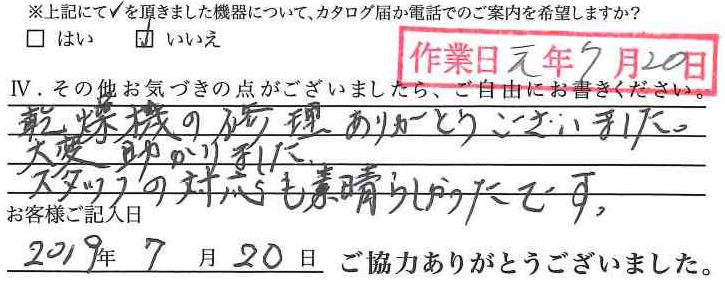 ※上記にて✓を頂きました機器について、カタログ届か電話でのご案内を希望しますか?
□ はい ☑ いいえ
作業日元年7月20日
Ⅳ.その他お気づきの点がございましたら、ご自由にお書きください。
乾燥機の修理ありがとうございました。
大変助かりました。
スタッフの対応も素晴らしかったです。
お客様ご記入日
2019年 7 月 20 日 ご協力ありがとうございました。